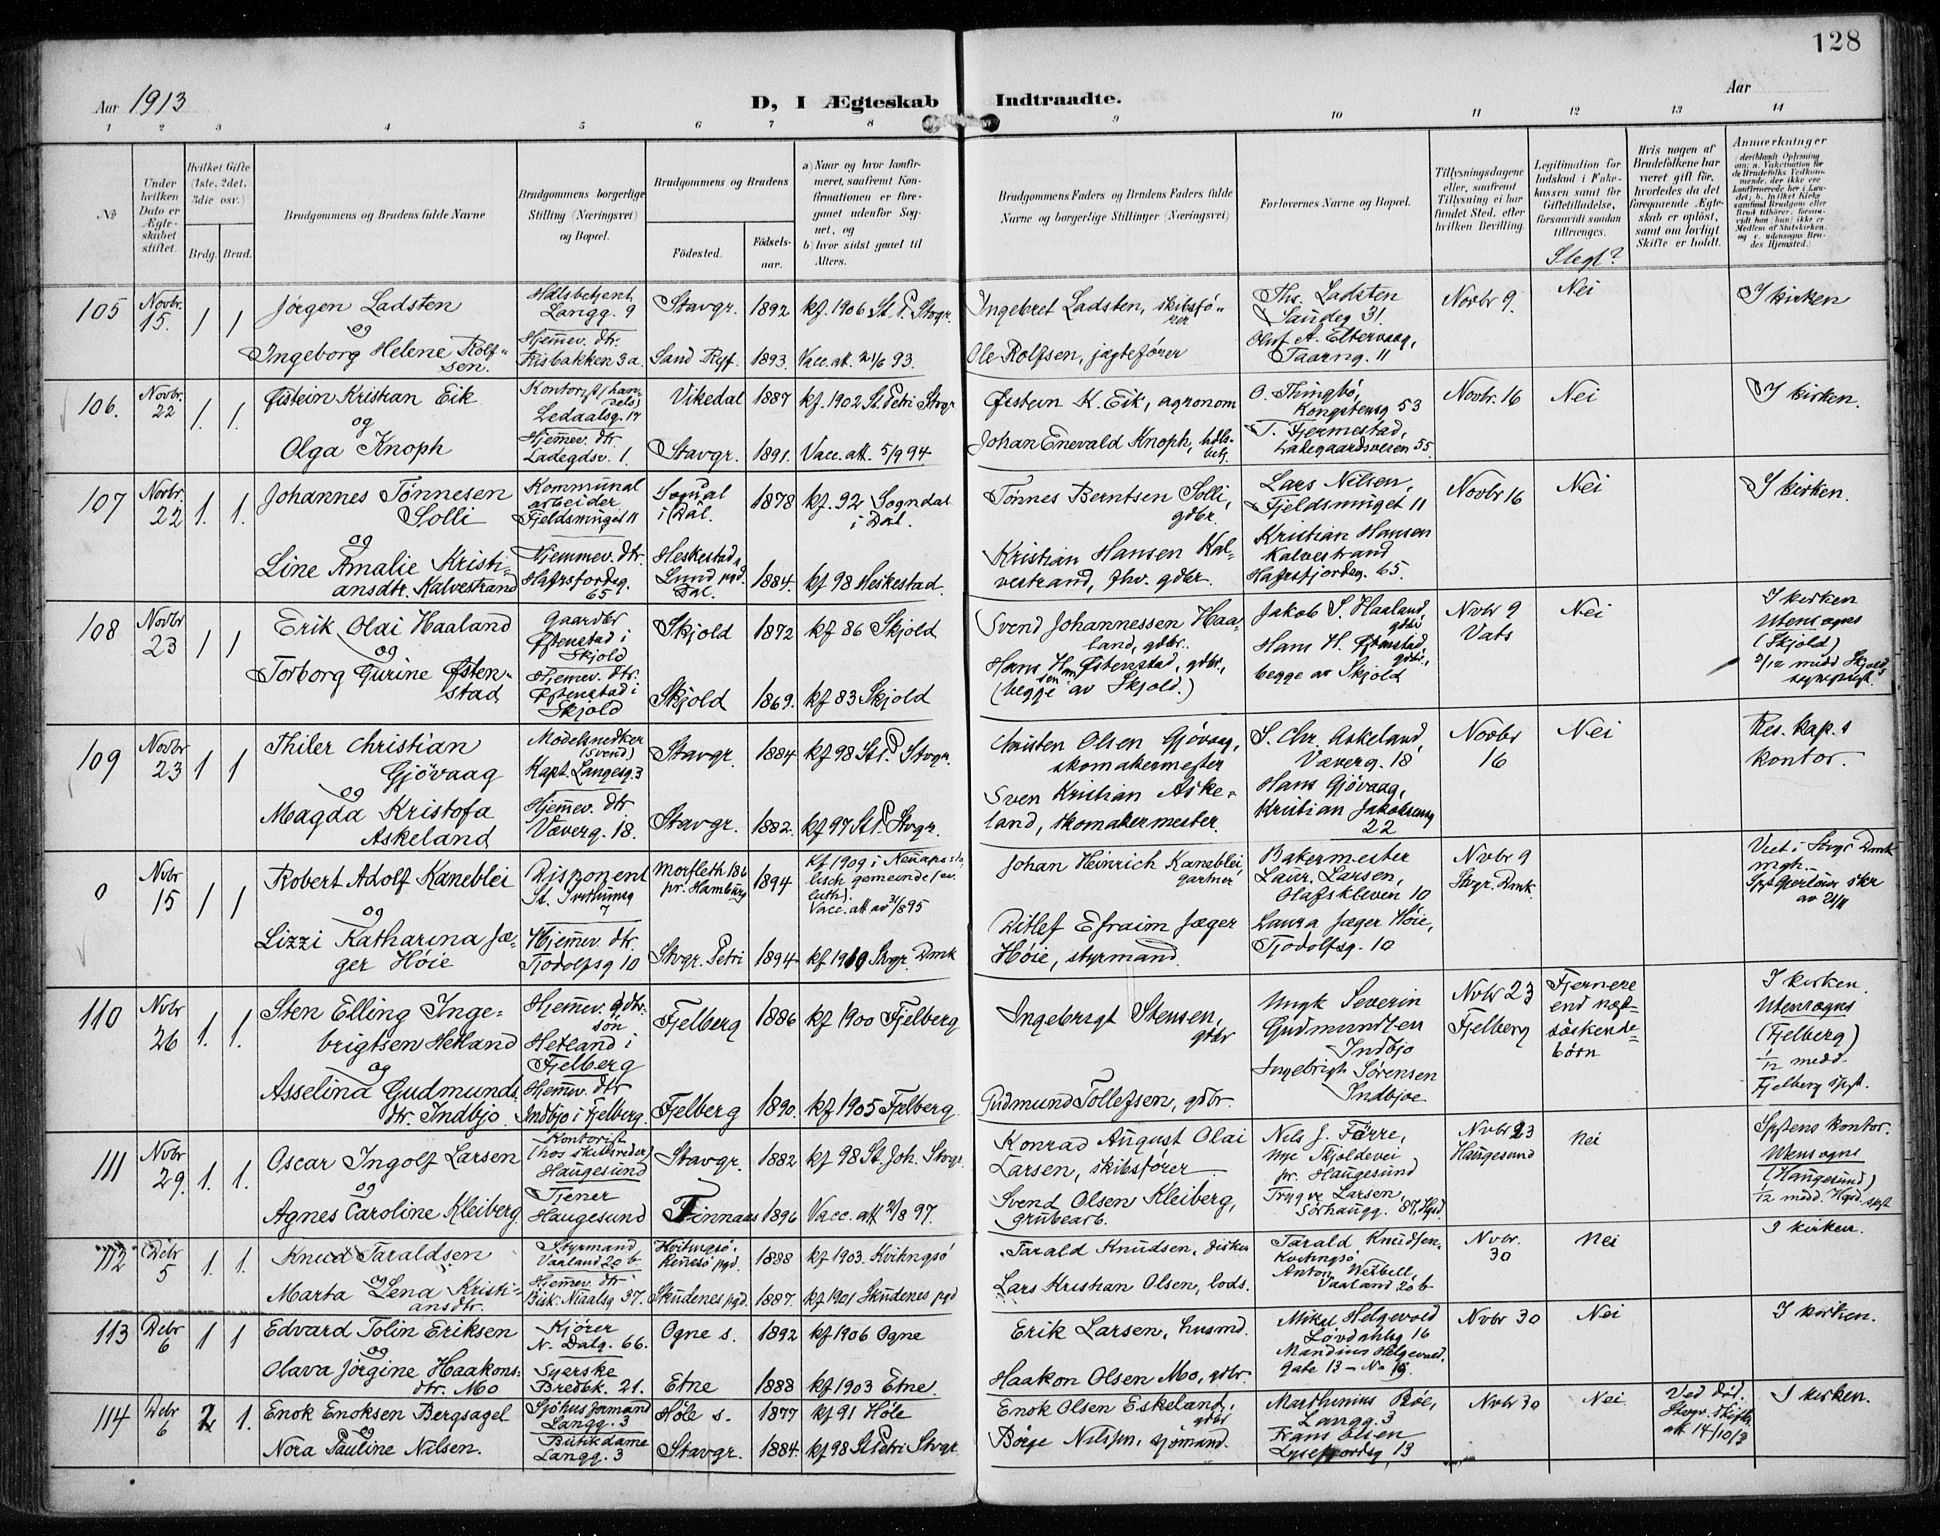 128
Aar 1913
D, I Ægteskab Indtraadte.
Aar
1 2 3 4 5 6 7 8 9 10 11 12 13 14
No
Under hvilken Dato er Ægteskabet stiftet.
Hvilket Gifte (1ste, 2det, 3die osv.)
Brdg. Brud.
Brudgommens og Brudens fulde Navne
Brudgommens borgerlige Stilling (Næringsvei) og Bopæl.
Brudgommens og Brudens
Fødested.
Fødselsaar.
a) Naar og hvor konfirmeret, saafremt Konfirmationen er foregaaet udenfor Sognet, og
b) hvor sidst gaaet til Alters.
Brudgommens Faders og Brudens Faders fulde Navne og borgerlige Stillinger (Næringsvei)
Forlovernes Navne og Bopæl.
Tillysningsdagene eller, saafremt Tillysning ei har fundet Sted, efter hvilken Bevilling.
Legitimation for Indskud i Enkekassen samt for Giftetilladelse, forsaavidt saadan tiltrænges.
Slegt?
Hvis nogen af Brudefolkene har været gift før, hvorledes da det foregaaende Ægteskab er opløst, samt om lovligt Skifte er holdt.
Anmærkninger
105 Novbr. 15. 1 1
Jørgen Ladsten
og
Ingeborg Helene Rolfsen.
Hdlsbetjent Langg. 9
Hjemmev. dtr. Risbakken 3a.
Stavgr. 1892 kf. 1906 St. P. Stvgr.
Sand Ryf. 1893. Vacc. att. 21/6 93.
Ingebret Ladsten, skibsfører
Ole Rolfsen, jægtefører
Ths. Ladsten Saudeg 31.
Oluf A. Eltervaag, Taarng. 11
Novbr 9. Nei I kirken
106. Novbr. 22 1. 1.
Østein Kristian Eik
og
Olga Knoph
Kontorist (handels) Ledaalsg. 17
Hjemmev. dtr Ladegdsv. 1.
Vikedal 1887 kf. 1902 St. Petri Stvgr
Stavgr. 1891. Vacc. att. 5/9 94.
Østein K. Eik, agronom
Johan Enevald Knoph, hdlsbetj.
O. Thingbø, Kongstensg 53
T. Fjermestad, Ladegaardsveien 55.
Novbr. 16 Nei I kirken.
107 Novbr. 22 1. 1.
Johannes Tønnesen Solli
og
Line Amalie Kristiansdtr. Kalvestrand
Kommunalarbeider Fjeldsmuget 11
Hjemmev. dtr. Hafrsfjordsg. 65
Sogndal i Dal. 1878 kf. 92 Sogndal i Dal.
Heskestad, Lund pgd. Dal. 1884. kf 98 Heskestad.
Tønnes Berntsen Solli, gdbr.
Kristian Hansen Kalvestrand, fhv. gdbr.
Lars Nilsen, Fjeldsmuget 11
Kristian Hansen Kalvestrand Hafrsfjordsg. 65.
Novbr 16 Nei I kirken.
108 Novbr 23 1 1
Erik Olai Haaland
og
Torborg Gurine Østenstad
Gaardbr Østenstad i Skjold
Hjemev. dtr. Østenstad i Skjold
Skjold 1872 kf 86 Skjold
Skjold 1869. kf 83 Skjold
Svend Johannessen Haaland, gdbr.
Hans Hansen Østenstad, gdbr., (begge av Skjold.)
Jakob S. Haaland, gdbr
Hans H. Østenstad, gdbr, begge av Skjold
Nvbr 9 Vats Nei
I kirken
Utensogns (Skjold)
medd Skjold sogneprest.
109 Novbr 23 1 1
Thiler Christian Gjövaag
og
Magda Kristofa Askeland
Modelsnedker (svend) Kapt. Langesg. 3
Hjemev. dtr Væverg. 18.
Stavgr. 1884 kf. 98 St. P. Stvgr.
Stavgr. 1882. kf 97 St. P. Stvgr.
Christen Olsen Gjövaag, skomakermester
Sven Kristian Askeland, skomakermester.
S. Chr. Askeland, Væverg. 18
Hans Gjövaag, Kristian Jakobsensg 22
Novbr 16 Nei Res. kap.s kontor.
0 Nvbr 15 1 1
Robert Adolf Kaneblei
og
Lizzi Katharina Jæger Höie
Disponent St. Svithunsg 7
Hjemev. dtr. Tjodolfsg 10
Morfleth 186 pr. Hamburg 1894 kf 1909 i Neuapostolisch gemeinde
Vacc. att av 31/8 95
Stvgr. Petri 1894 kf 1910 Stvgr. Dmk
Johan Heinrich Kaneblei, gartner
Ditlef Efraim Jæger Höie, styrmand.
Bakermester Laur. Larsen, Olafskleven 10
Laura Jæger Höie, Tjodolfsg. 10
Nvbr 9 Stvgr. Dmk.
Viet i Stvgr Dmk mgh.
110 Nvbr 26 1. 1.
Sten Elling Ingebrigtsen Hetland
og
Asselina Gudmundsdtr. Indbjo.
Hjemev. gdbr. søn Hetland i Fjelberg
Hjemv. dtr Indbjo i Fjelberg.
Fjelberg 1886 kf 1900 Fjelberg
Fjelberg 1890. kf 1905 Fjelberg.
Ingebrigt Stensen, gdbr
Gudmund Tollefsen, gdbr.
Ungk Severin Gudmundsen Indbjo
Ingebrigt Sörensen Indbjoe
Nvbr 23 Fjelberg
Fjernere end næstsöskendebörn
I kirken.
Utensogns (Fjelberg)
1/12 medd. Fjelberg spst.
111 Nvbr 29. 1. 1.
Oscar Ingolf Larsen
og
Agnes Caroline Kleiberg
Kontorist (hos skibsreder) Haugesund
Tjener Haugesund
Stavgr. 1882 kf 98 St. Joh. Stvgr.
Finnaas 1896 Vacc. att 2/8 97.
Konrad August Olai Larsen, skibsförer
Svend Olsen Kleiberg, grubearb.
Nils J. Förre, nye Skjoldevei pr. Haugesund
Trygve Larsen, Sörhaugg. 87, Hgsd.
Nvbr 23 Haugesund nei
Spstens kontor.
Utensogns (Haugesund)
1/12 medd. Hgsd. spst
112 Debr 5 1. 1.
Knud Taraldsen
og
Marta Lena Kristiansdtr.
Styrmand Vaaland 20 b.
Hjemev. dtr Bisk. Njaalsg 37.
Hvitingsö, Rennesö pgd. 1888 kf. 1903 Kvitingsö
Skudenes pgd. 1887. kf 1901 Skudenes pgd
Tarald Knudsen, fisker
Lars Kristian Olsen, lods.
Tarald Knudsen. Kvitingsö
Anton Wetbell, Vaaland 20 b
Nvbr. 30 nei I kirken.
113 Debr 6 1 1
Edvard Tolin Eriksen
og
Olava Jörgine Haakonsdtr. Mo
Kjörer N. Dalg. 66.
Syerske Bredbk. 21.
Ogne s. 1892 kf 1906 Ogne
Etne 1888 kf 1903 Etne.
Erik Larsen, husmd.
Haakon Olsen Mo, gdbr.
Mikal Helgevold Lövdahlsg 16
Mandius Helgevold, gate 13 - No 19
Nvbr 30 Nei I kirken.
114 Debr 6 2 1.
Enok Enoksen Bergsagel
og
Nora Pauline Nilsen.
Sjöhusformand Langg. 3
Butikdame Langg. 3
Höle s. 1877 kf 91 Höle
Stavgr. 1884. kf 98 St. Petri Stvgr.
Enok Olsen Eskeland, gdbr
Börge Nilsen, sjömand.
Marthinius Böe, Langg. 3
Frans Olsen Lysefjordsg 13
Nvbr 30 Nei
Ved död. Stvgr. skifteatt 14/10/13
I kirken.